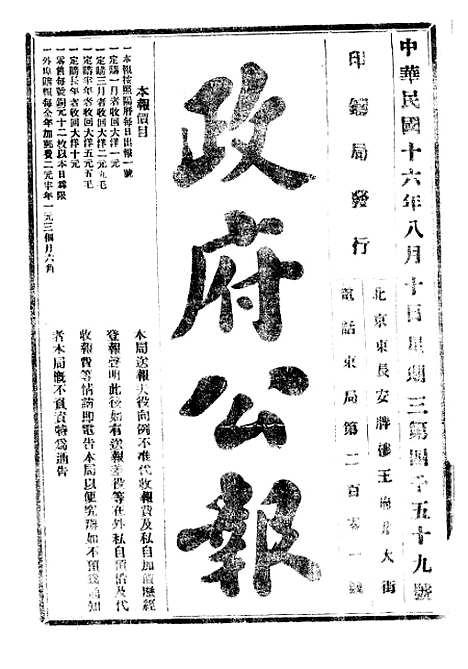 中華民國十六年八月十日星期三第四千五十九號
印鑄局發行
北京東長安牌樓王府井大街
電話東局第二百零一號
政府公報
本局送報夫役向例不准代收報費及私自加價歷經
登報聲明此後如有送報差役等在外私自預借及代
收報費等情請即電告本局以便究辦如不預為通知
者本局概不負責特為通告
本報價目
一本報按照陽曆每日出報一號
一定購一月者收回大洋一元
一定購三月者收回大洋二元九毛
一定購半年者收回大洋五元五毛
一定購長年者收回大洋十元
一零售每號銅元十二枚以本日為限
一外埠購報每全年加郵費二元半年一元三個月六角